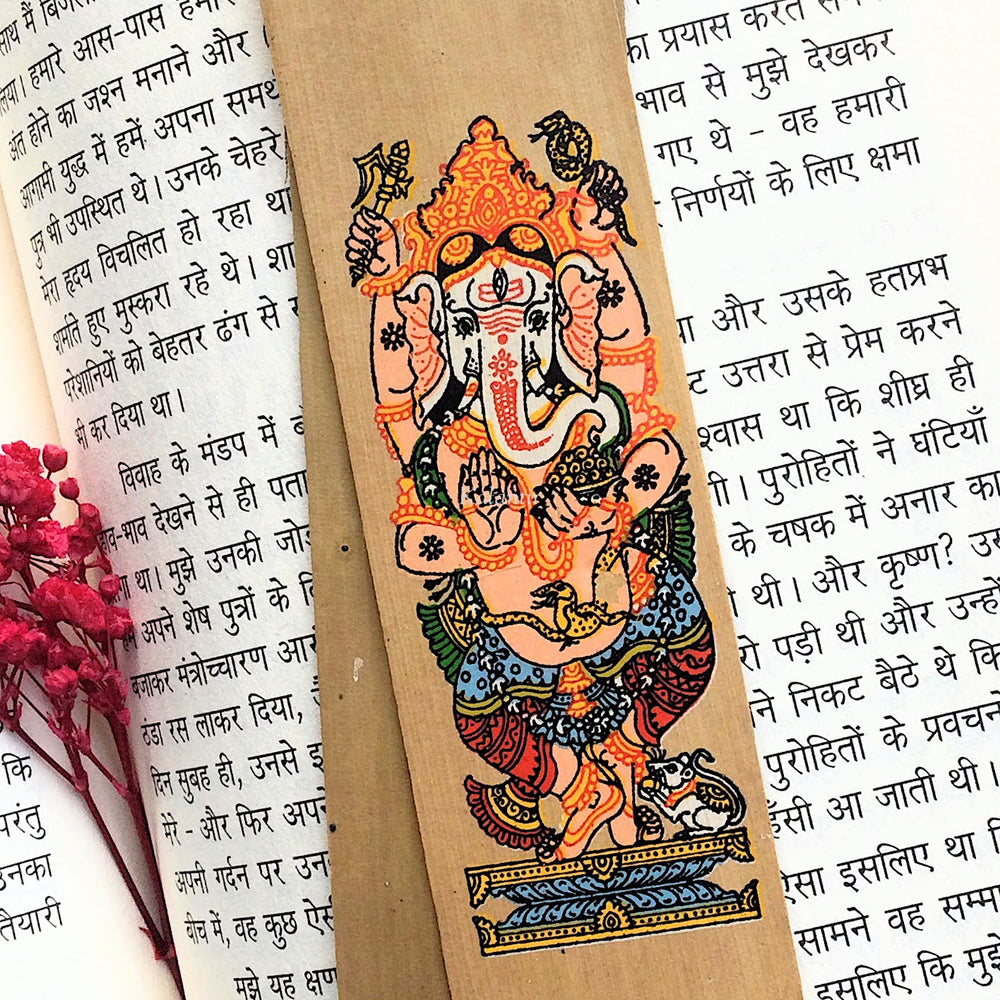 साथ में
लिया। हमारे आस-पास हमारे
अंत होने का जश्न मनाने और
आगामी युद्ध में हमें अपना समर्थ
पुत्र भी उपस्थित थे। उनके चेहरे
मेरा हृदय विचलित हो रहा था
शर्माते हुए मुस्करा रहे थे। शा
परेशानियों को बेहतर ढंग से
भी कर दिया था।
विवाह के मंडप में
हाव-भाव देखने से ही पता
था। मुझे उनकी जोड़
अपने शेष पुत्रों के वि
बजाकर मंत्रोच्चारण आर
ठंडा रस लाकर दिया,
दिन सुबह ही, उनसे इ
मेरे - और फिर अपन
अपनी गर्दन पर उन
बीच में, वह कुछ ऐसी
मुझे यह क्षण
कि
परंतु
उनका
तैयारी
का प्रयास करते
भाव से मुझे देखकर
गए थे - वह हमारी
निर्णयों के लिए क्षमा
और उसके हतप्रभ
उत्तरा से प्रेम करने
श्वास था कि शीघ्र ही
पुरोहितों ने घंटियाँ
के चषक में अनार का
थी। और कृष्ण?
रो पड़ी थी और उन्होंने
निकट बैठे थे कि
पुरोहितों के प्रवचनों
हँसी आ जाती थी।
ऐसा इसलिए था कि
सामने वह सम्मा
इसलिए कि मुझे